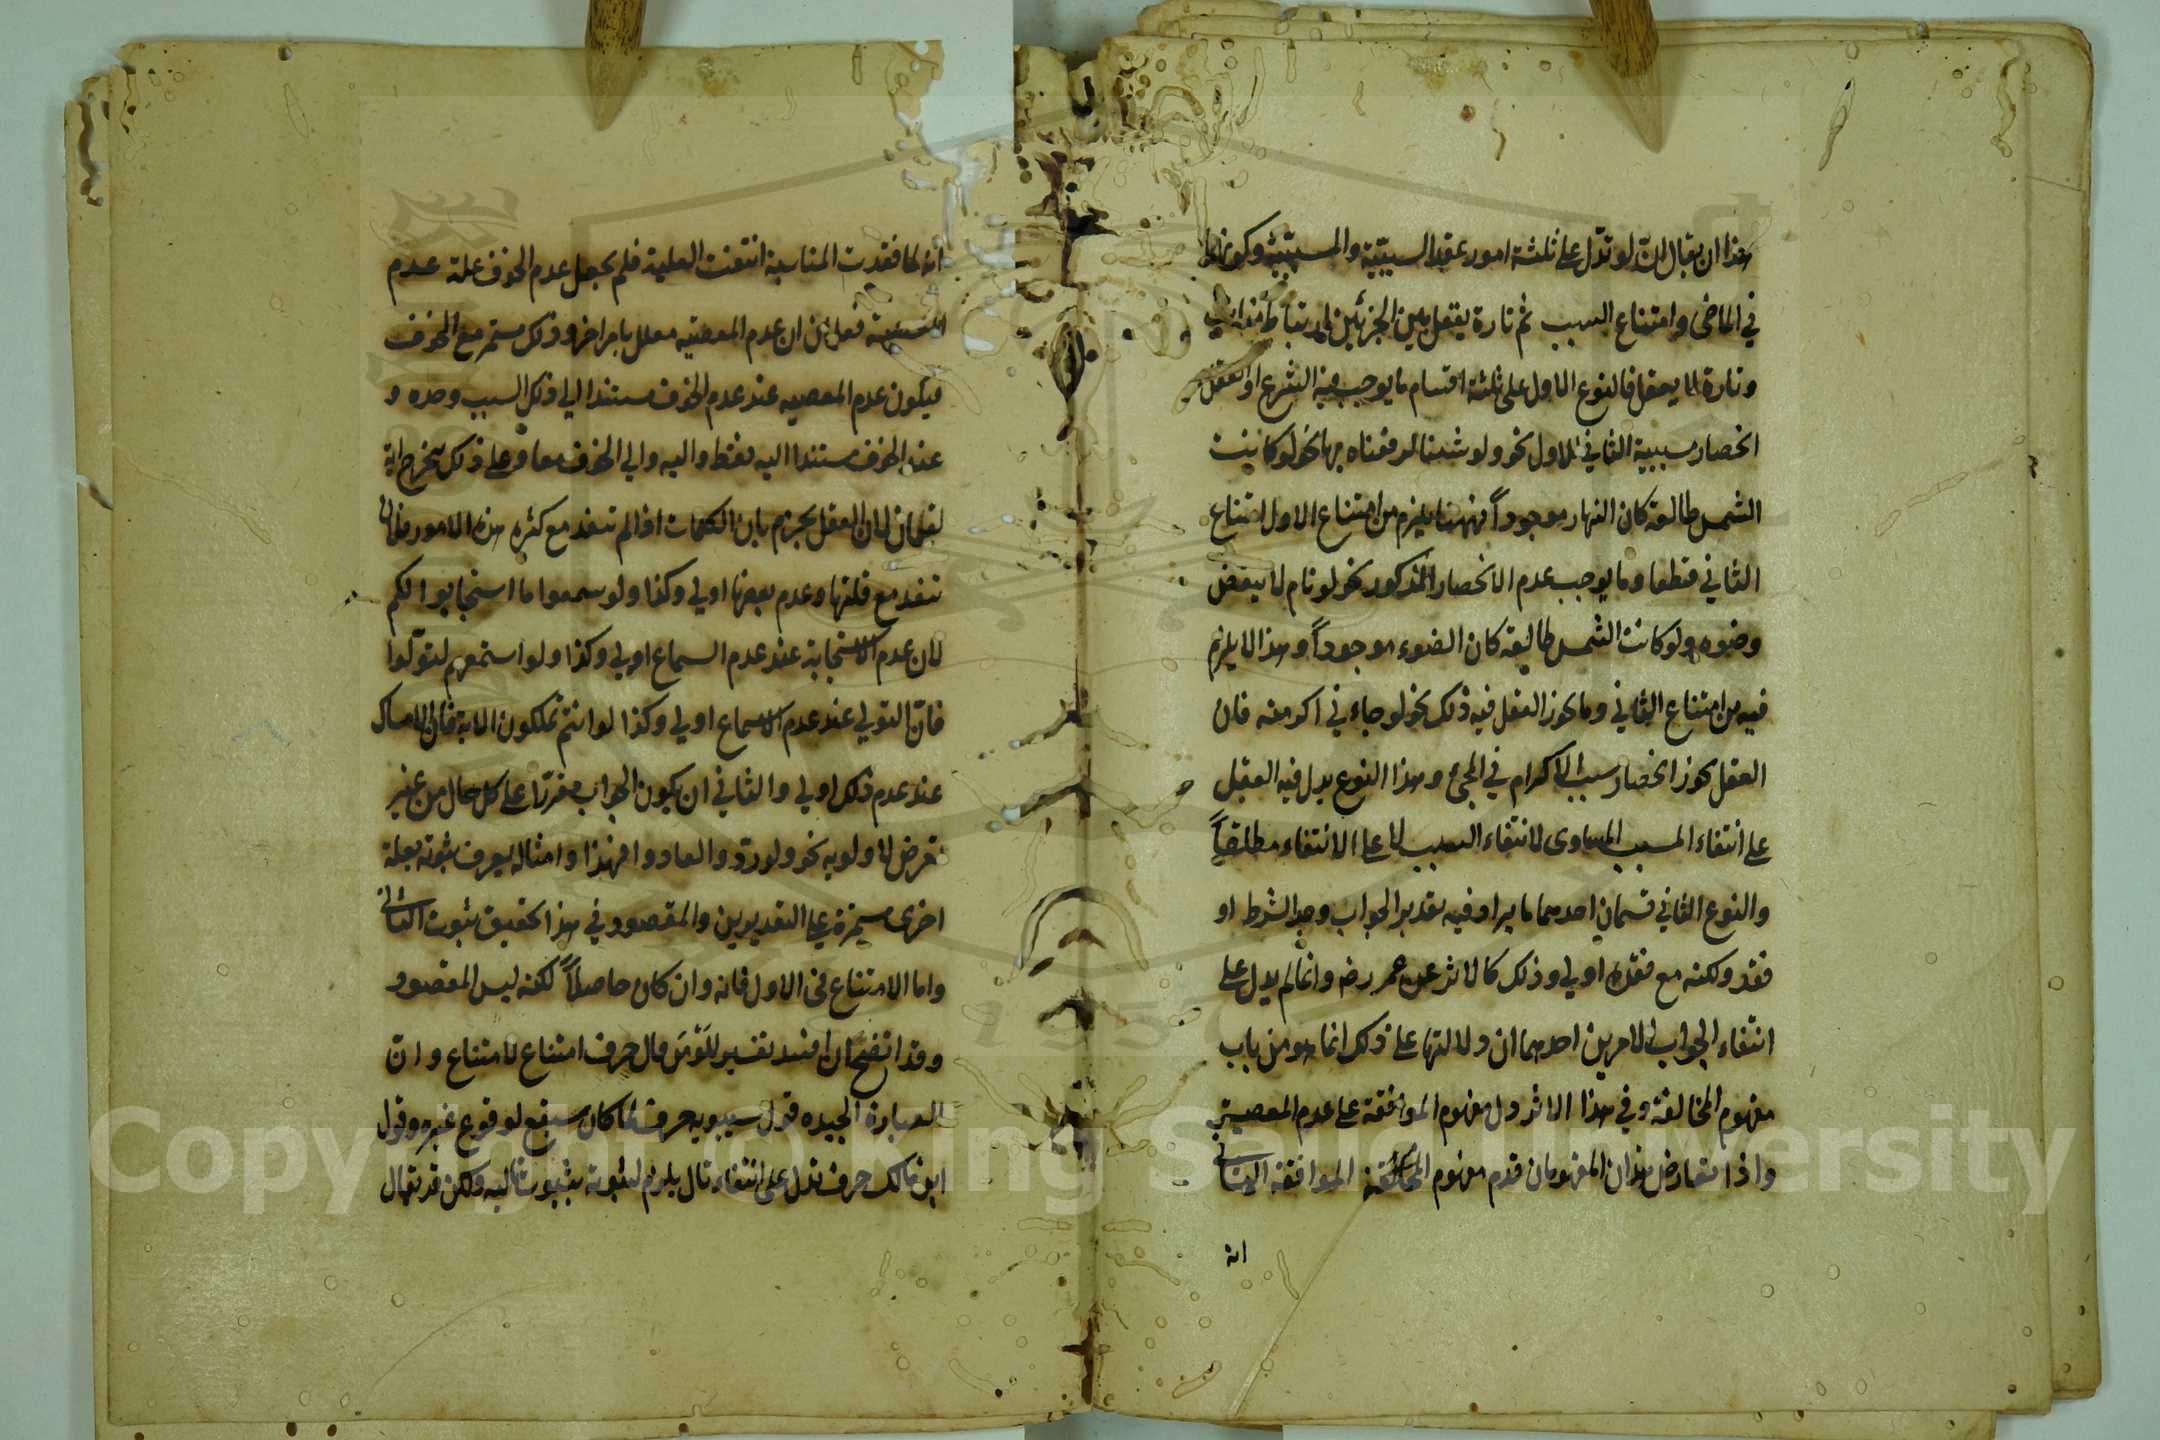 هذا ان يقال ان لو تدل على ثلثة امور عقد السببية والمسببية وكونهما
في الماضى وامتناع السبب ثم تارة يعقل بين الجزئين ارتباط مناسب
وتارة لا يعقل فالنوع الاول على ثلثة اقسام ما يوجب فيه الشرع او العقل
انحصار سببية الثاني في الاول نحو ولو شئنا لرفعناه بها نحو لو كانت
الشمس طالعة كان النهار موجوداً فهنا يلزم من امتناع الاول امتناع
الثاني قطعا وما يوجب عدم الانحصار المذكور نحو لو نام لانتقض
وضوه ولو كانت الشمس طالعة كان الضوء موجوداً وهذا لا يلزم
فيه من امتناع الثاني وما يجوز العقل فيه ذلك نحو لو جاءني اكرمته فان
العقل يجوز انحصار سبب الاكرام في المجئ وهذا النوع يدل فيه العقل
على انتفاء المسبب المساوى لانتفاء السبب لا على الانتفاء مطلقاً
والنوع الثاني قسمان احدهما ما يراد فيه تقدير الجواب وجد الشرط او
فقد ولكنه مع فقده اولي وذلك كالاثر عن عمر رضه وانما لم يدل على
انتفاء الجواب لامرين احدهما ان دلالتها على ذلك انما هو من باب
مفهوم المخالفة وفي هذا الاثر دل مفهوم الموافقة على عدم المعصية
واذا تعارض هذان المفهومان قدم مفهوم الموافقة الثاني
انه
انه لما فقدت المناسبة انتفت العلية فلم يجعل عدم الخوف علة عدم
المعصية فعلمنا ان عدم المعصيه معلل بامر اخر وذلك مستمر مع الخوف
فيكون عدم المعصيه عند عدم الخوف مستندا الي ذلك السبب وحده و
عند الخوف مستندا اليه فقط واليه والي الخوف معا وعلى ذلك يتخرج اية
لقمان لان العقل يجزم بان الكلمات اذا لم تنفد مع كثره هذه الامور فلان
تنفد مع قلتها وعدم بعضها اولي وكذا ولو سمعوا ما استجابوا لكم
لان عدم الاستجابة عند عدم السماع اولي وكذا ولو اسمعهم لتولّوا
فانّ التولي عند عدم الاسماع اولي وكذا لو انتم تملكون الاية فان الامساك
عند عدم ذلك اولي والثاني ان يكون الجواب مقررا على كل حال من غير
تعرض لاولويه نحو ولو ردوا لعادوا فهذا وامثاله يعرف ثبوته بعلة
اخرى مستمرة على التقديرين والمقصود في هذا تحقيق ثبوت الثاني
واما الامتناع في الاول فانه وان كان حاصلاً لكنه ليس المقصود
وقد اتضح ان افسد تفسير للو من قال حرف امتناع لامتناع وانّ
العبارة الجيده قول سيبويه حرف لما كان سيقع لوقوع غيره وقول
ابن مالك حرف تدل على انتفاء تال يلزم لثبوته ثبوت تاليه ولكن قد يقال
Copyright © King Saud University
1957